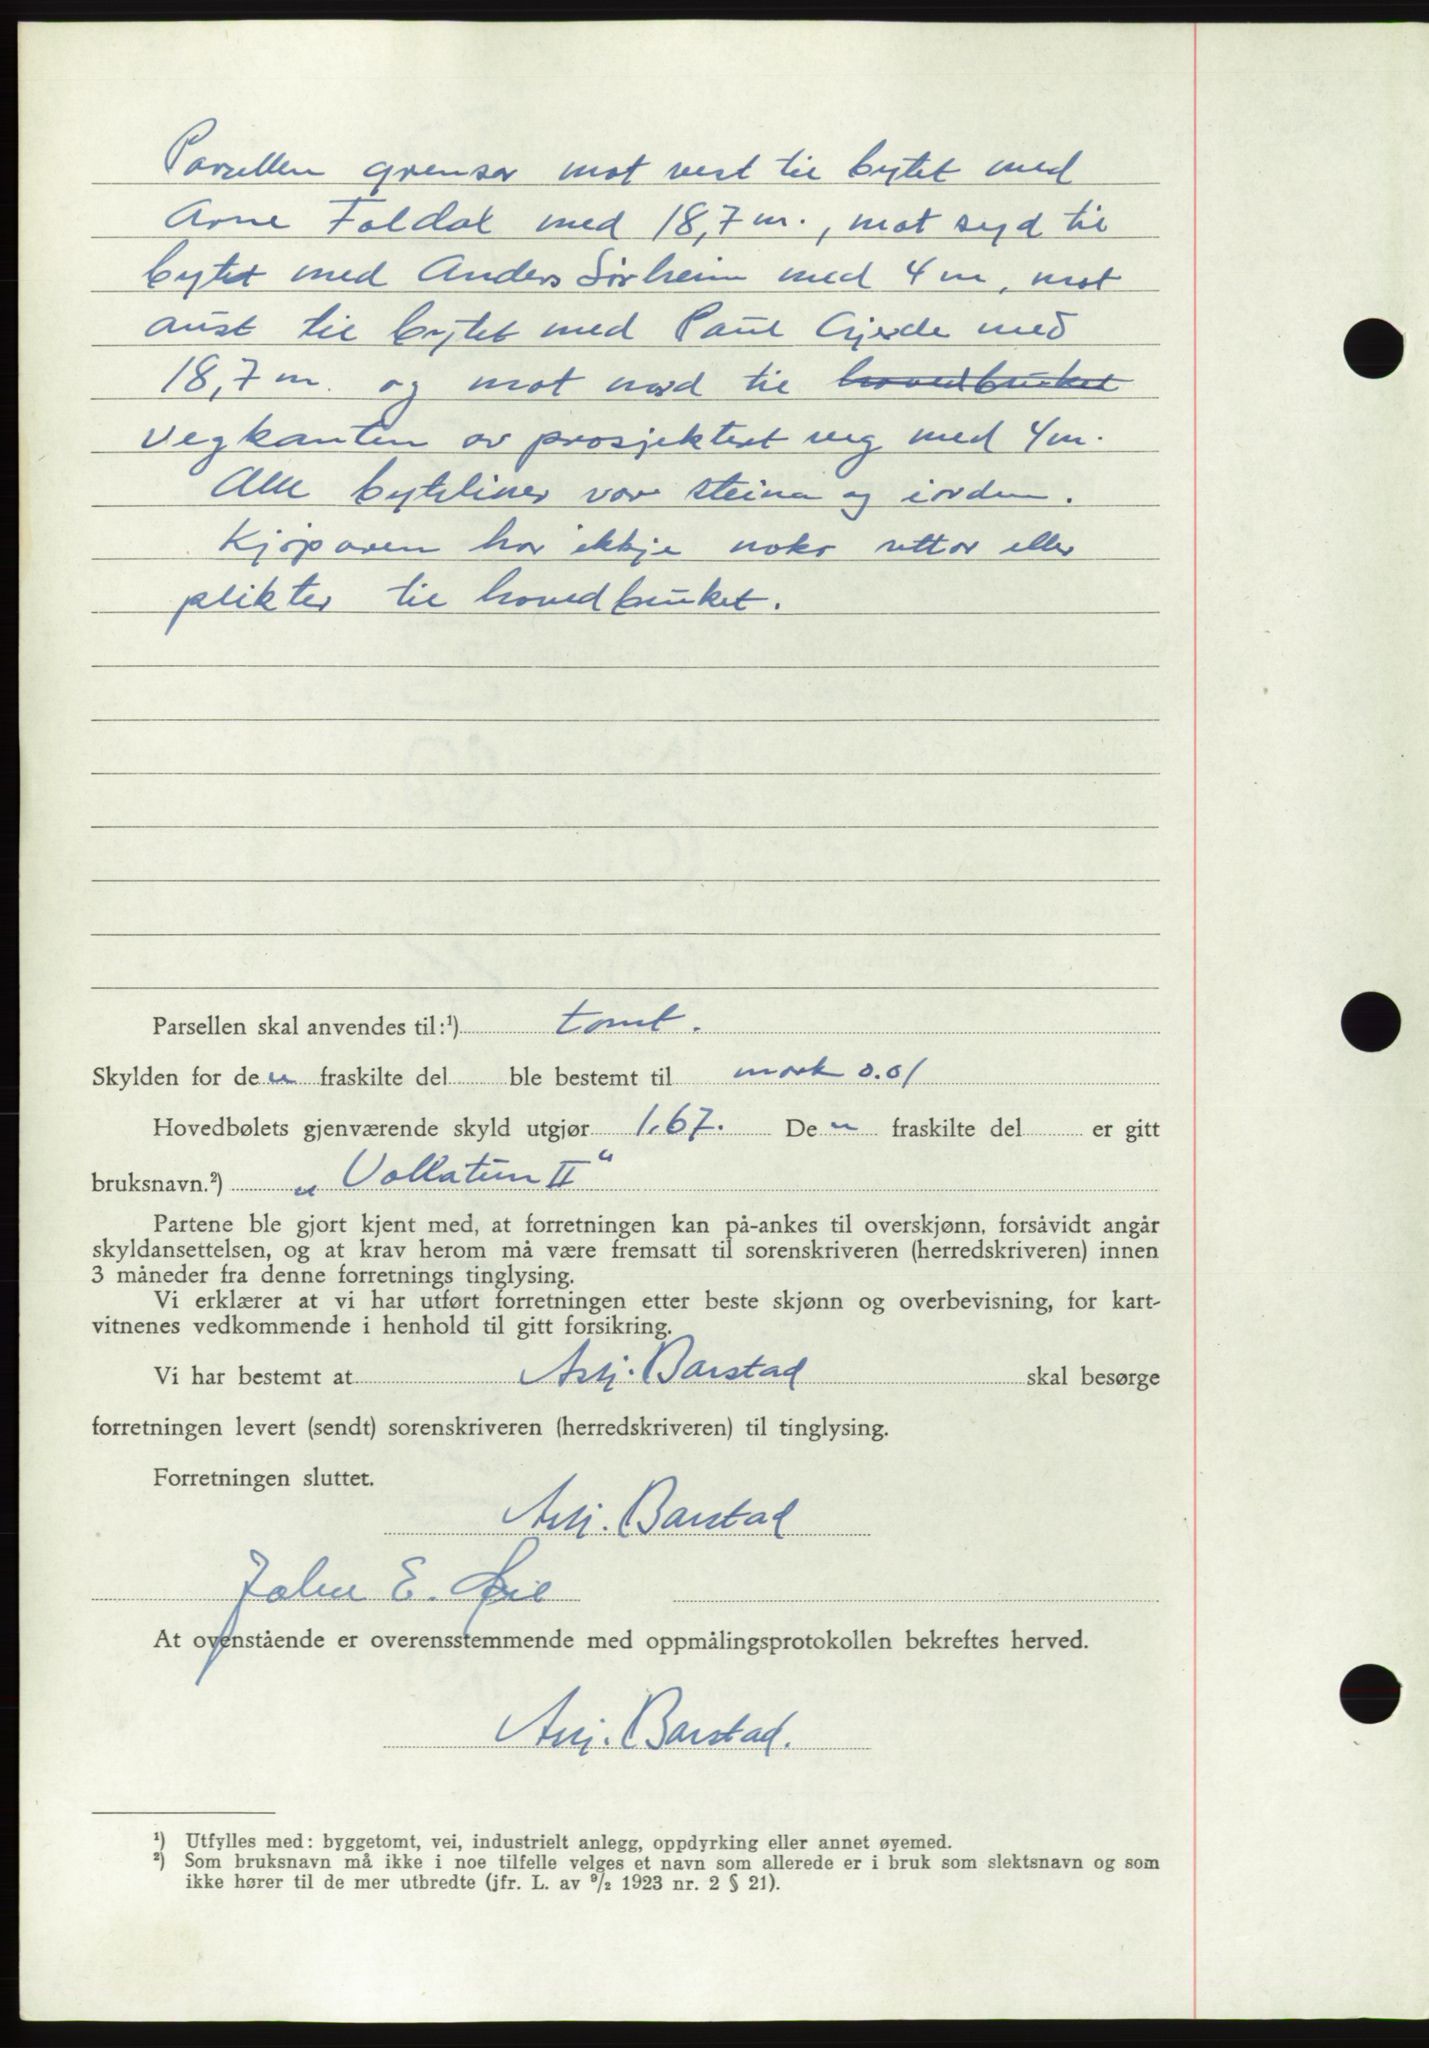 Parsellen grenser mot vest til bytet med
Arne Foldal med 18,7 m., mot syd til
bytet med Anders Sørheim med 4 m, mot
aust til bytet med Paul Gjerde med
18,7 m. og mot nord til hovedbruket
vegkanten av prosjektert veg med 4 m.
Alle byteliner var steina og i orden.
Kjøparen har ikkje noko rettar eller
plikter til hovedbruket.
Parsellen skal anvendes til:¹) tomt.
Skylden for den fraskilte del ble bestemt til mark 0.01
Hovedbølets gjenværende skyld utgjør 1.67. Den fraskilte del er gitt
bruksnavn.²) „Vollatun II"
Partene ble gjort kjent med, at forretningen kan på-ankes til overskjønn, forsåvidt angår
skyldansettelsen, og at krav herom må være fremsatt til sorenskriveren (herredskriveren) innen
3 måneder fra denne forretnings tinglysing.
Vi erklærer at vi har utført forretningen etter beste skjønn og overbevisning, for kart-
vitnenes vedkommende i henhold til gitt forsikring.
Vi har bestemt at Asbj. Barstad skal besørge
forretningen levert (sendt) sorenskriveren (herredskriveren) til tinglysing.
Forretningen sluttet.
Asbj. Barstad
John E. Øie
At ovenstående er overensstemmende med oppmålingsprotokollen bekreftes herved.
Asbj. Barstad.
¹) Utfylles med: byggetomt, vei, industrielt anlegg, oppdyrking eller annet øyemed.
²) Som bruksnavn må ikke i noe tilfelle velges et navn som allerede er i bruk som slektsnavn og som
ikke hører til de mer utbredte (jfr. L. av ⁹/₂ 1923 nr. 2 § 21).